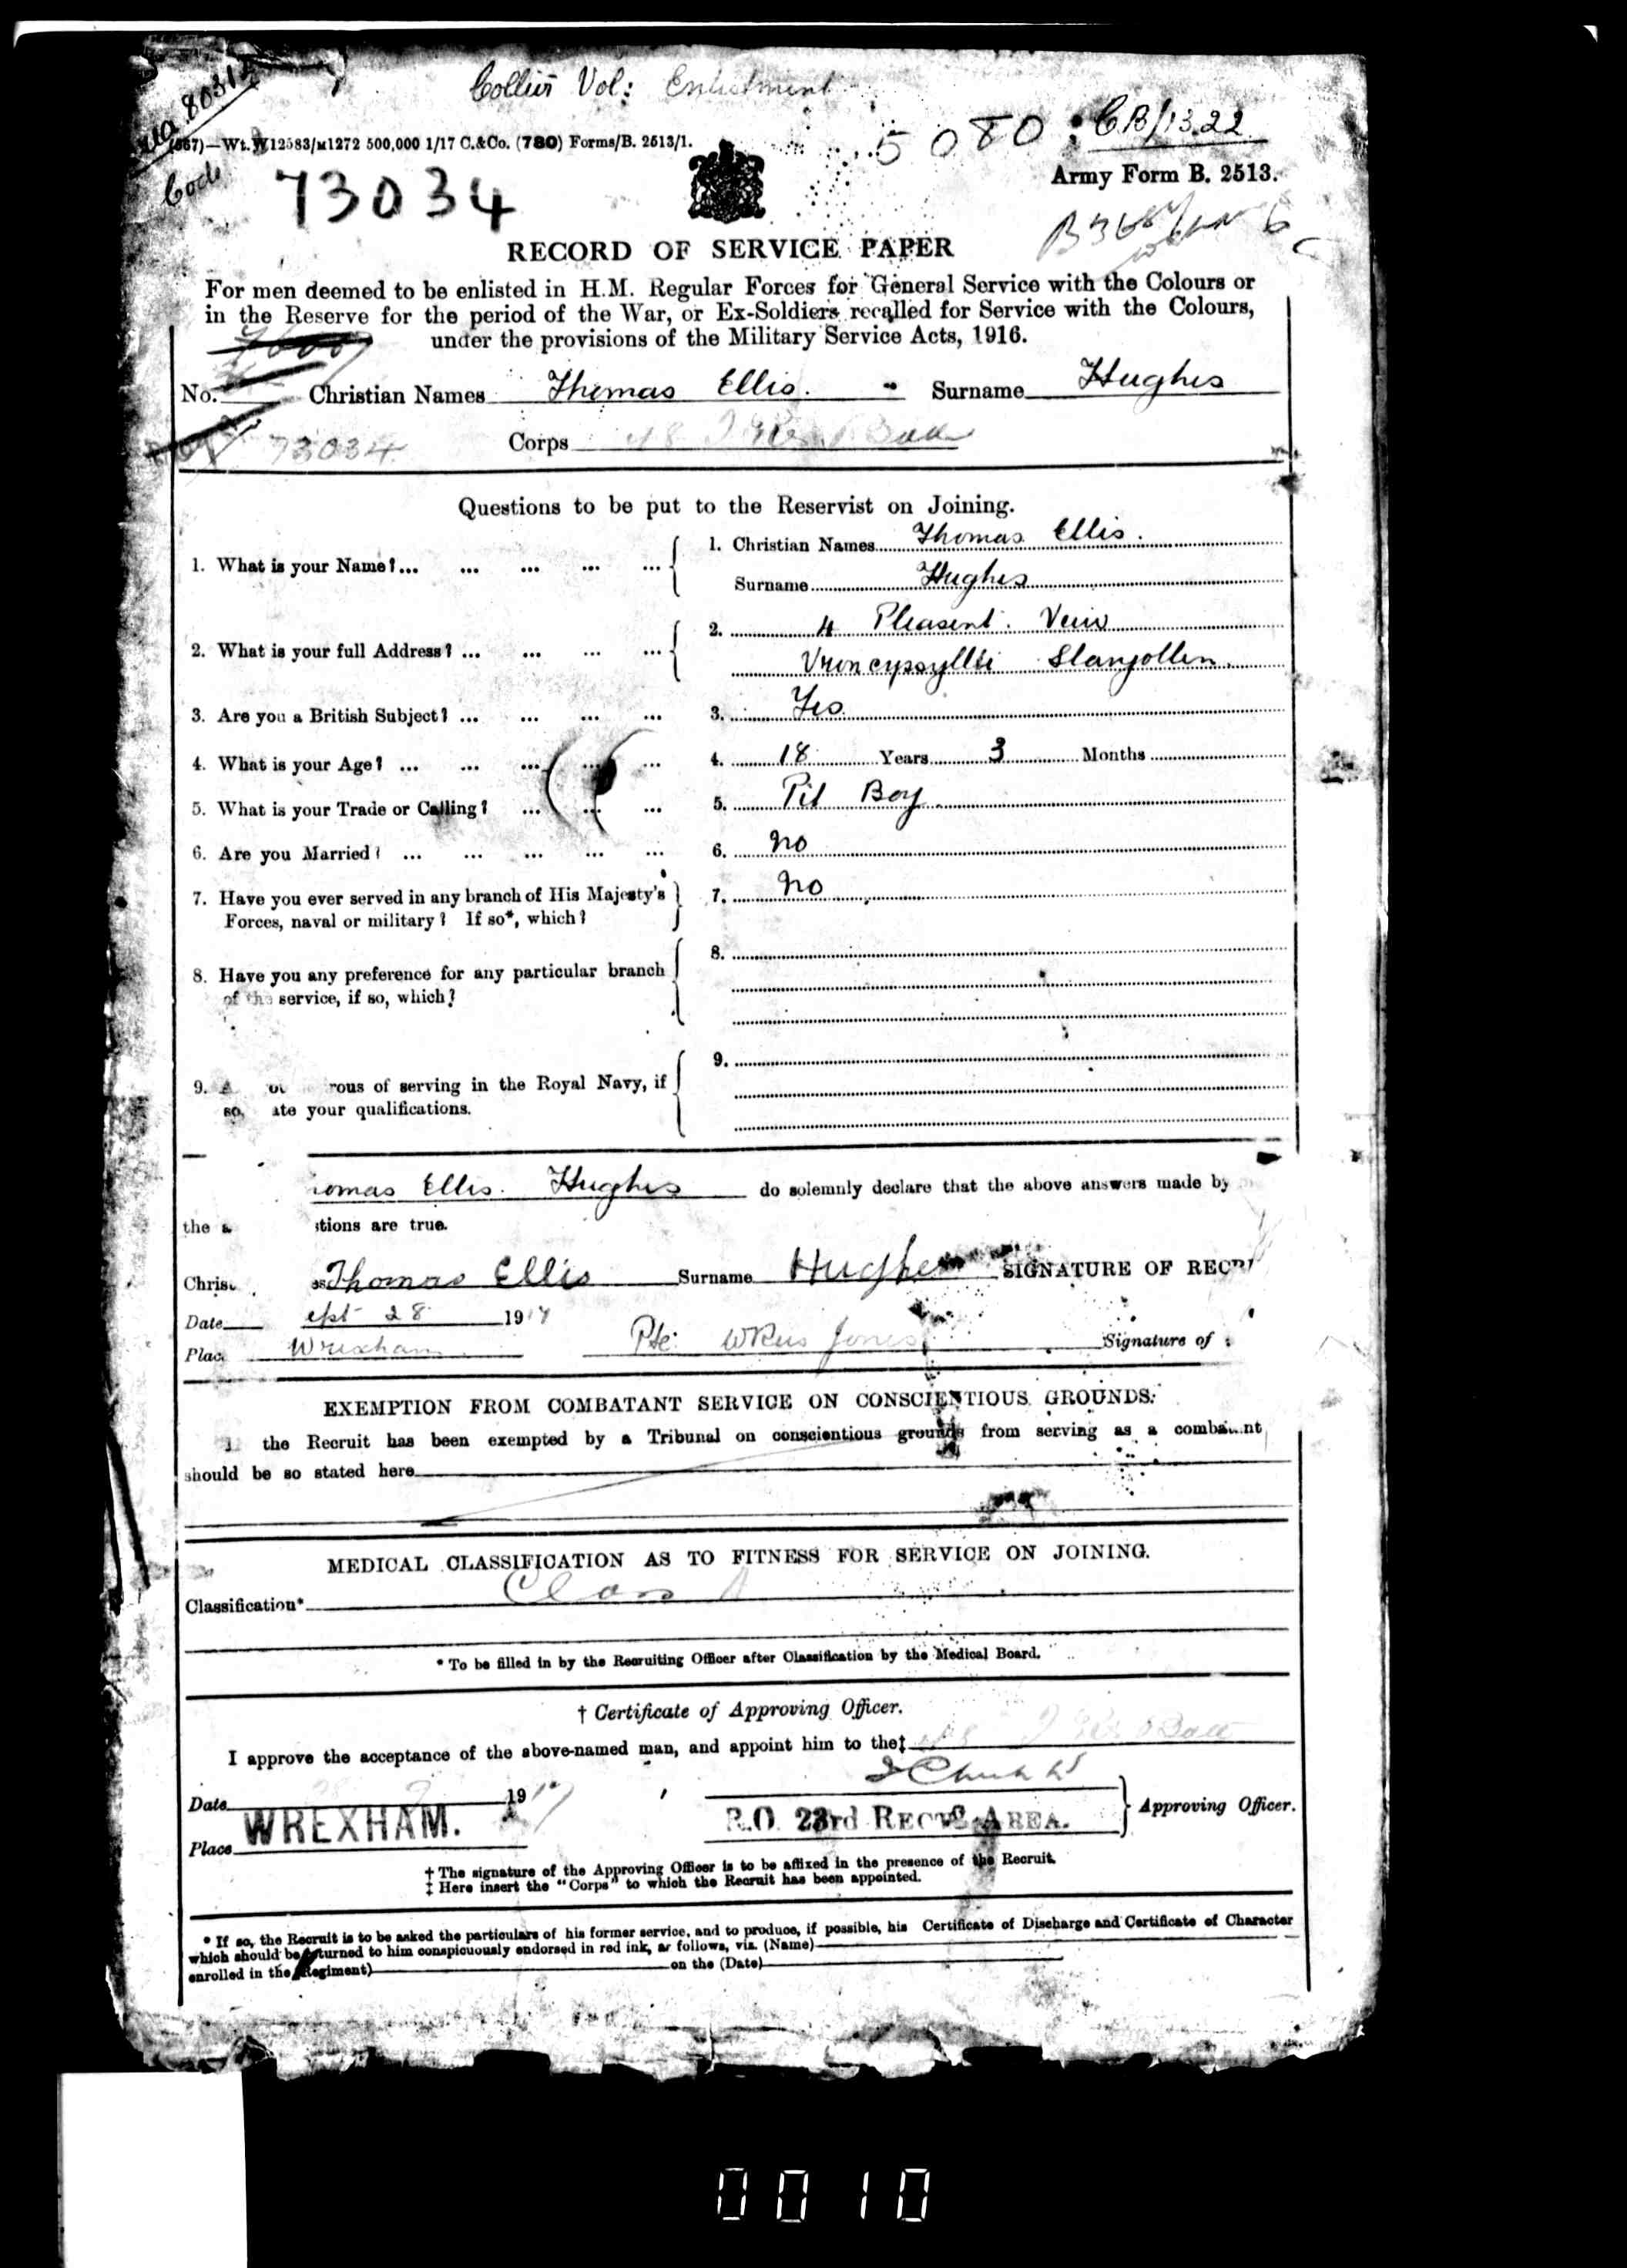 Collier Vol: Enlistment
80312
(367)—Wt. W12583/M1272 500,000 1/17 C.&Co. (780) Forms/B. 2513/1.
5080
CB/1322
Army Form B. 2513.
73034
RECORD OF SERVICE PAPER
For men deemed to be enlisted in H.M. Regular Forces for General Service with the Colours or
in the Reserve for the period of the War, or Ex-Soldiers recalled for Service with the Colours,
under the provisions of the Military Service Acts, 1916.
No. Christian Names Thomas Ellis. Surname Hughes
73034 Corps 48 T R Batt
Questions to be put to the Reservist on Joining.
1. What is your Name? ... ... ... ... ... 1. Christian Names Thomas Ellis.
Surname Hughes
2. What is your full Address? ... ... ... ... 2. 4 Pleasent Veiw
Vroncyssyllti Llangollen.
3. Are you a British Subject? ... ... ... ... 3. Yes
4. What is your Age? ... ... ... ... ... 4. 18 Years 3 Months
5. What is your Trade or Calling? ... ... ... 5. Pit Boy
6. Are you Married? ... ... ... ... ... 6. no
7. Have you ever served in any branch of His Majesty's 7. no
Forces, naval or military? If so*, which?
8. Have you any preference for any particular branch 8.
of the service, if so, which?
9. rous of serving in the Royal Navy, if 9.
so, ate your qualifications.
omas Ellis. Hughes do solemnly declare that the above answers made by
the a tions are true.
Chris es Thomas Ellis Surname Hughes SIGNATURE OF RECR
Date ept 28 1917
Plac Wrexham Pte: Jones Signature of
EXEMPTION FROM COMBATANT SERVICE ON CONSCIENTIOUS GROUNDS.
the Recruit has been exempted by a Tribunal on conscientious grounds from serving as a combatant
should be so stated here
MEDICAL CLASSIFICATION AS TO FITNESS FOR SERVICE ON JOINING.
Classification* Class A
* To be filled in by the Recruiting Officer after Classification by the Medical Board.
† Certificate of Approving Officer.
I approve the acceptance of the above-named man, and appoint him to the‡ 48 T R Batt
Date 1917
Place WREXHAM. R.O. 23rd RECTG AREA. Approving Officer.
† The signature of the Approving Officer is to be affixed in the presence of the Recruit.
‡ Here insert the "Corps" to which the Recruit has been appointed.
* If so, the Recruit is to be asked the particulars of his former service, and to produce, if possible, his Certificate of Discharge and Certificate of Character
which should be returned to him conspicuously endorsed in red ink, as follows, viz. (Name)
enrolled in the (Regiment) on the (Date)
0010